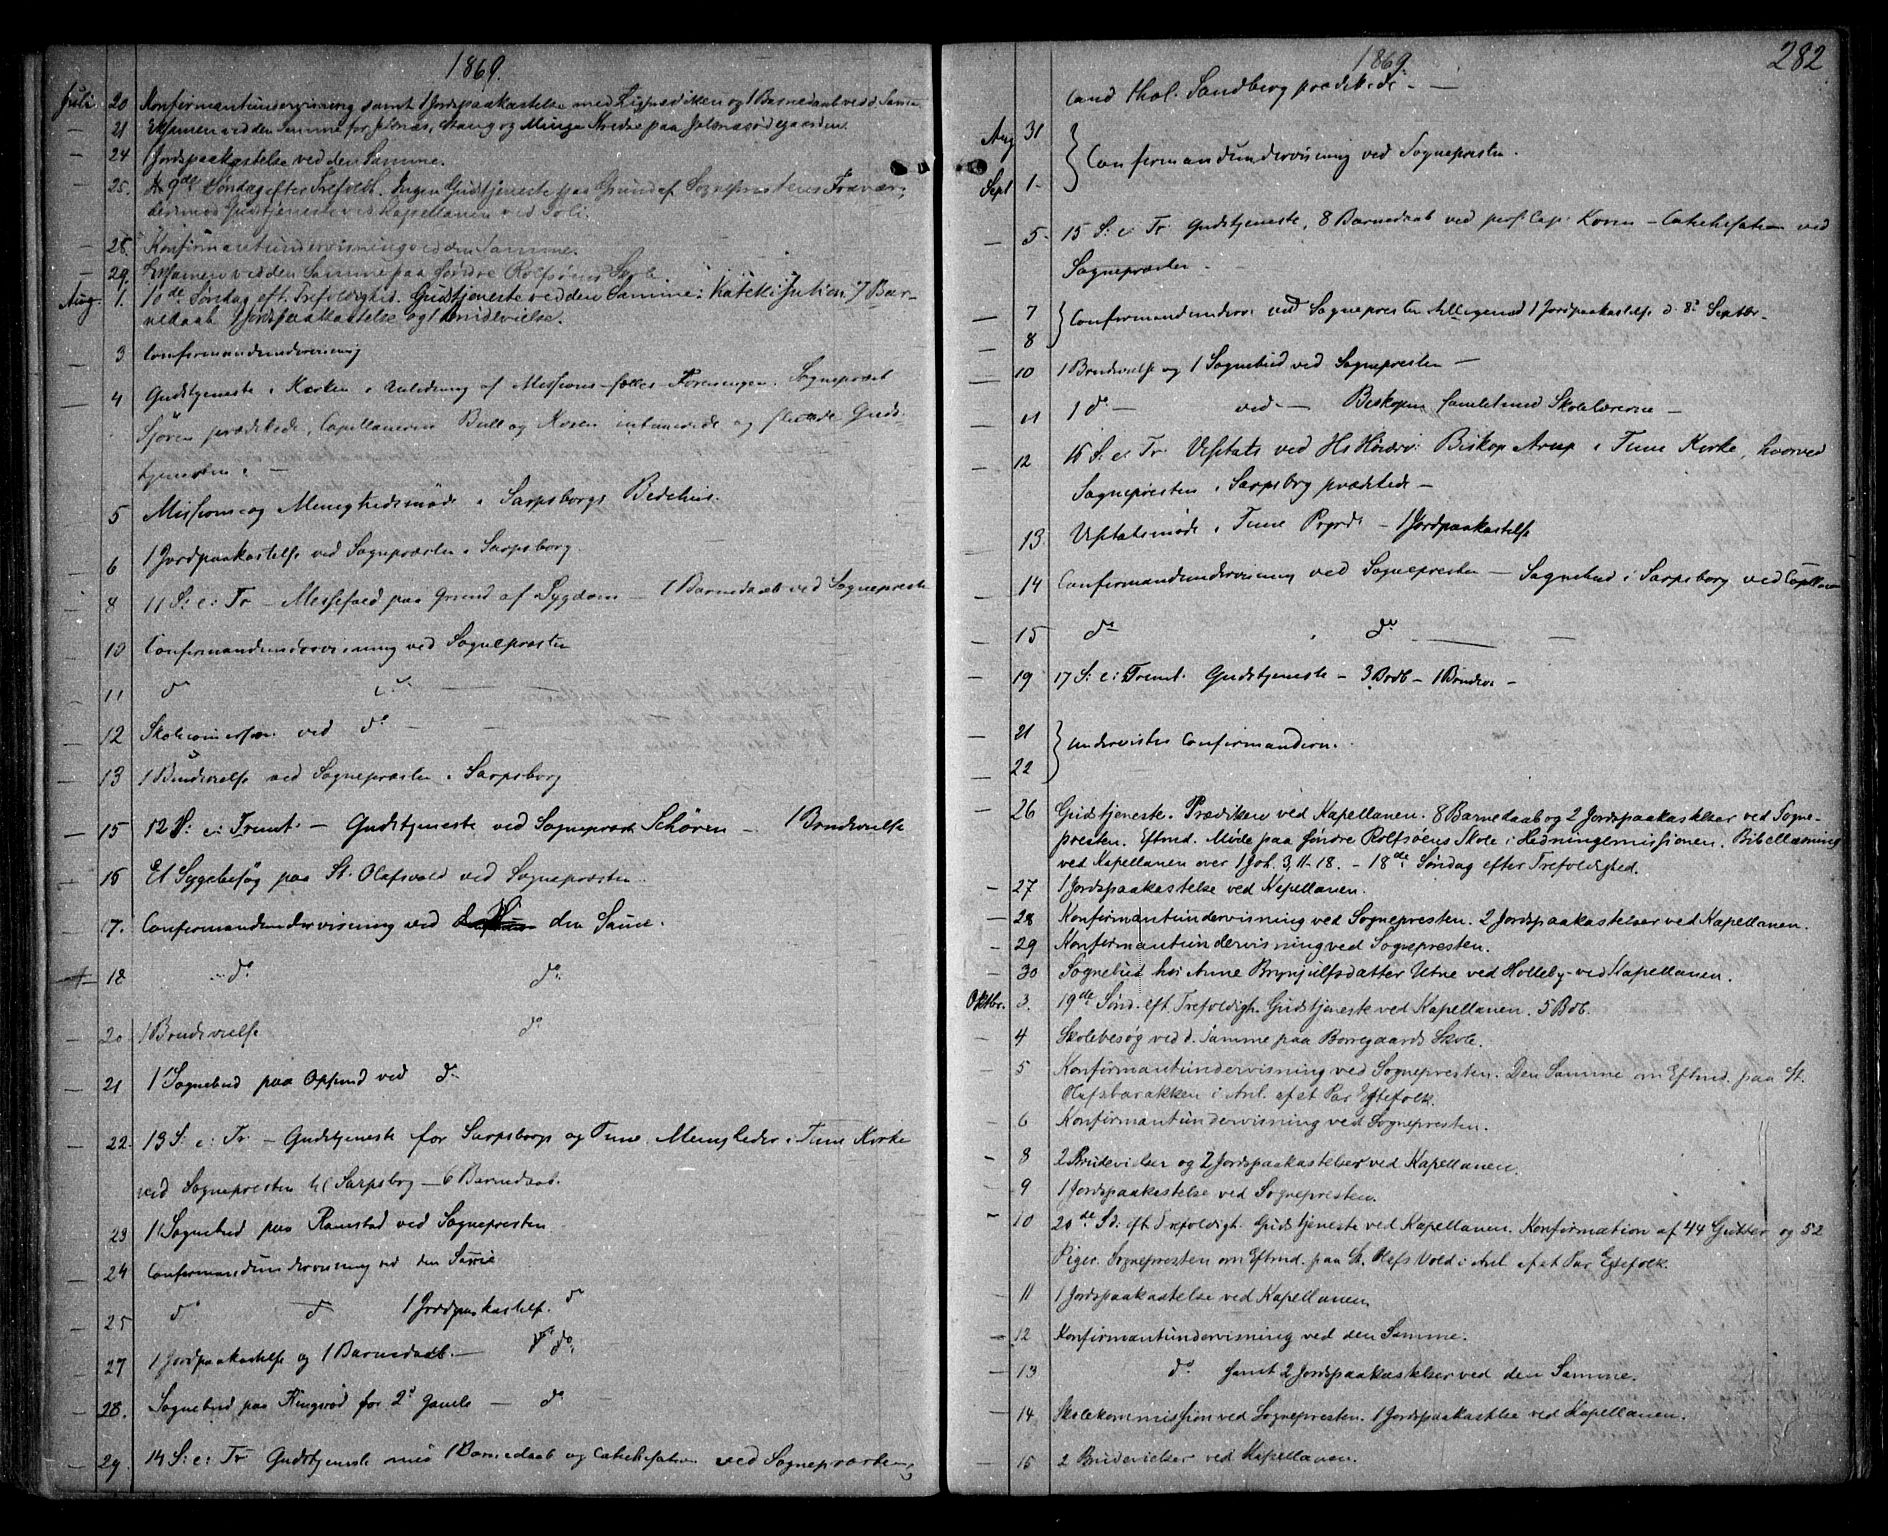 1869.
Juli 20 Konfirmantundervisning samt 1 Jordspaakastelse med Ligprædiken og 1 Barnedaab ved d. Samme
— 21 Examen ved den Samme for Jelsnæs, Stang og Minge Kredse paa Jelsnæsødegaarden.
— 24 1 Jordspaakastelse ved den Samme.
— 25. 9de Søndag efter Trefold. Ingen Gudstjeneste paa Grund af Sognepræstens Fravær;
derimod Gudstjeneste ved Kapellanen ved Soli.
— 28. Konfirmantundervisning ved den Samme.
— 29. Examen ved den Samme paa Søndre Rolfsøens Skole.
Aug. 1. 10de Søndag eft. Trefoldighed. Gudstjeneste ved den Samme; Katekisation. 7 Bar-
nedaab Jordspaakastelse og 1 Brudevielse.
3 Confirmandundervisning
4 Gudstjeneste i Kirken i Anledning af Missions-fælles-Foreningen. Sognepræst
Sjøren prædikede, Capellanerne Bull og Koren intonerede og sluttede Guds-
tjenesten. —
5 Missions og Menighedsmøde i Sarpsborgs Bedehus.
6 1 Jordpaakastelse ved Sognepræsten i Sarpsborg.
— 8 11 S: e: Tr — Messefald paa Grund af Sygdom — 1 Barnedaab ved Sognepresten
— 10 Confirmandundervisning ved Sognepræsten
— 11 do do —
— 12 Skolecommission ved do —
— 13 1 Brudevielse ved Sognepræsten i Sarpsborg
— 15 12 S: e: Trinit. — Gudstjeneste ved Sognepræst Schøren — 1 Brudevielse
— 16 Et Sygebesøg paa St. Olafsvold ved Sognepræsten
— 17. Confirmandundervisning ved den Samme.
— 18 do do
— 20. 1 Brudevielse do
— 21 1 Sognebud paa Opsund ved do
— 22. 13 S: e: Tr — Gudstjeneste for Sarpsborgs og Tune Menigheder i Tune Kirke
ved Sognepresten til Sarpsborg — 6 Barnedaab.
— 23 1 Sognebud paa Ramstad ved Sognepresten
— 24 Confirmandundervisning ved den Samme
— 25 do do 1 Jordpaakastelse. do
— 27 1 Jordpaakastelse og 1 Barnedaab. — do.
— 28. Sognebud paa Ringsrød for 2de Gamle — do
— 29. 14 S: e: Tr Gudstjeneste med 1 Barnedaab og Catechisation ved Sognepræsten,
1869 282
Cand. theol. Sandberg prædikede. —
Aug 31
Confirmandundervisning ved Sognepresten.
Sept 1.
— 5. 15 S: e: Tr Gudstjeneste, 8 Barnedaab ved pers. Cap. Koren — Catechisation ved
Sognepræsten.
— 7 Confirmandunderv. ved Sognepresten 1 Jordpaakastelse d. 8de Septbr.
— 8
— 10 1 Brudevielse og 1 Sognebud ved Sognepresten —
— 11 1 do — ved — Biskopen samlet med Skolelærerne —
— 12 16 S: e: Tr Visitats ved Biskop Arup i Tune Kirke, hvorved
Sognepresten i Sarpsborg prædikede —
— 13. Visitatsmøde i Tune Prgrd. — 1 Jordpaakastelse
— 14 Confirmandundervisning ved Sognepresten — Sognebud i Sarpsborg ved Capellanen
— 15 do do —
— 19 17 S: e: Trinit. Gudstjeneste — 3 Brdb — 1 Brudev. —
— 21
Undervistes Confirmanderne.
— 22
— 26 Gudstjeneste. Prædiken ved Kapellanen. 8 Barnedaab og 2 Jordspaakastelser ved Sogne-
presten. Eftmd. Møde paa Søndre Rolfsøens Skole i Hedningemissionen. Bibellæsning
ved Kapellanen over 1 Joh. 3, 11-18. — 18de Søndag efter Trefoldighed.
— 27 1 Jordspaakastelse ved Kapellanen.
— 28 Konfirmantundervisning ved Sognepresten. 2 Jordspaakastelser ved Kapellanen.
— 29 Konfirmantundervisning ved Sognepresten.
— 30 Sognebud hos Anne Brynjulfsdatter Utne ved Holleby — ved Kapellanen.
Oktbr. 3. 19de Sønd. eft. Trefoldigh. Gudstjeneste ved Kapellanen. 5 Bdb.
— 4 Skolebesøg ved d. Samme paa Borregaards Skole.
— 5 Konfirmantundervisning ved Sognepresten. Den Samme om Eftmd. paa St.
Olafsbarakken i Anl. af et Par Egtefolk.
— 6 Konfirmantundervisning ved Sognepresten.
— 8 2 Brudevielser og 2 Jordspaakastelser ved Kapellanen.
— 9 1 Jordspaakastelse ved Sognepresten.
— 10 20de Sd. eft. Trefoldigh. Gudstjeneste ved Kapellanen. Konfirmation af 44 Gutter og 52
Piger. Sognepresten om Eftmd. paa St. Olafs Vold i Anl. af et Par Egtefolk.
— 11 1 Jordspaakastelse ved Kapellanen.
— 12 Konfirmantundervisning ved den Samme.
— 13 do samt 2 Jordspaakastelser ved den Samme.
— 14 Skolekommission ved Sognepresten. 1 Jordspaakastelse ved Kapellanen.
— 15 2 Brudevielser ved Kapellanen.